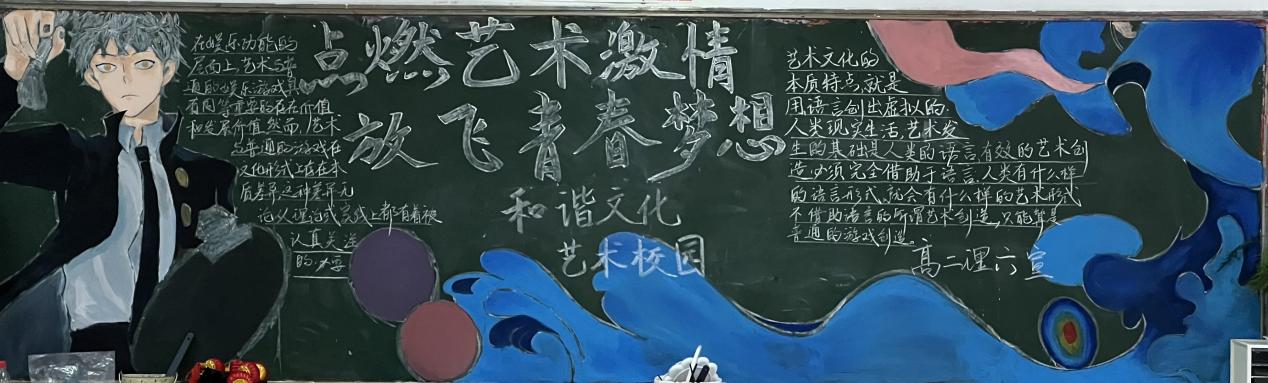 在娱乐功能的
层面上,艺术与普
通的娱乐游戏具
有同等重要的存在价值
和发展价值,然而,艺术
与普通的游戏在
文化形式上存在本
质差异,这种差异无
论从理论或实践上都有着被
认真关注
的必要
点燃艺术激情
放飞青春梦想
和谐文化
艺术校园
艺术文化的
本质特点,就是
用语言创出虚拟的
人类现实生活,艺术发
生的基础是人类的语言,有效的艺术创
造,必须完全借助于语言,人类有什么样
的语言形式,就会有什么样的艺术形式
不借助语言的所谓艺术创造,只能算是
普通的游戏创造。
高二理六宣